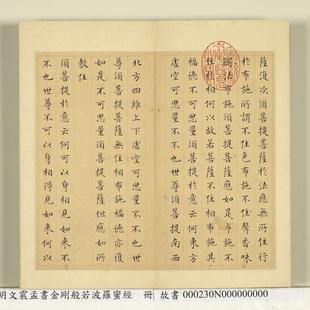 薩復次須菩提菩薩於法應無所住行
於布施所謂不住色布施不住聲香味
觸法布施須菩提菩薩應如是布施不
住於相何以故若菩薩不住相布施其
福德不可思量須菩提於意云何東方
虛空可思量不不也世尊須菩提南西
北方四維上下虛空可思量不不也世
尊須菩提菩薩無住相布施福德亦復
如是不可思量須菩提菩薩但應如所
教住
須菩提於意云何可以身相見如來不
不也世尊不可以身相得見如來何以
明文震孟書金剛般若波羅蜜經　冊 故書 000230N000000000